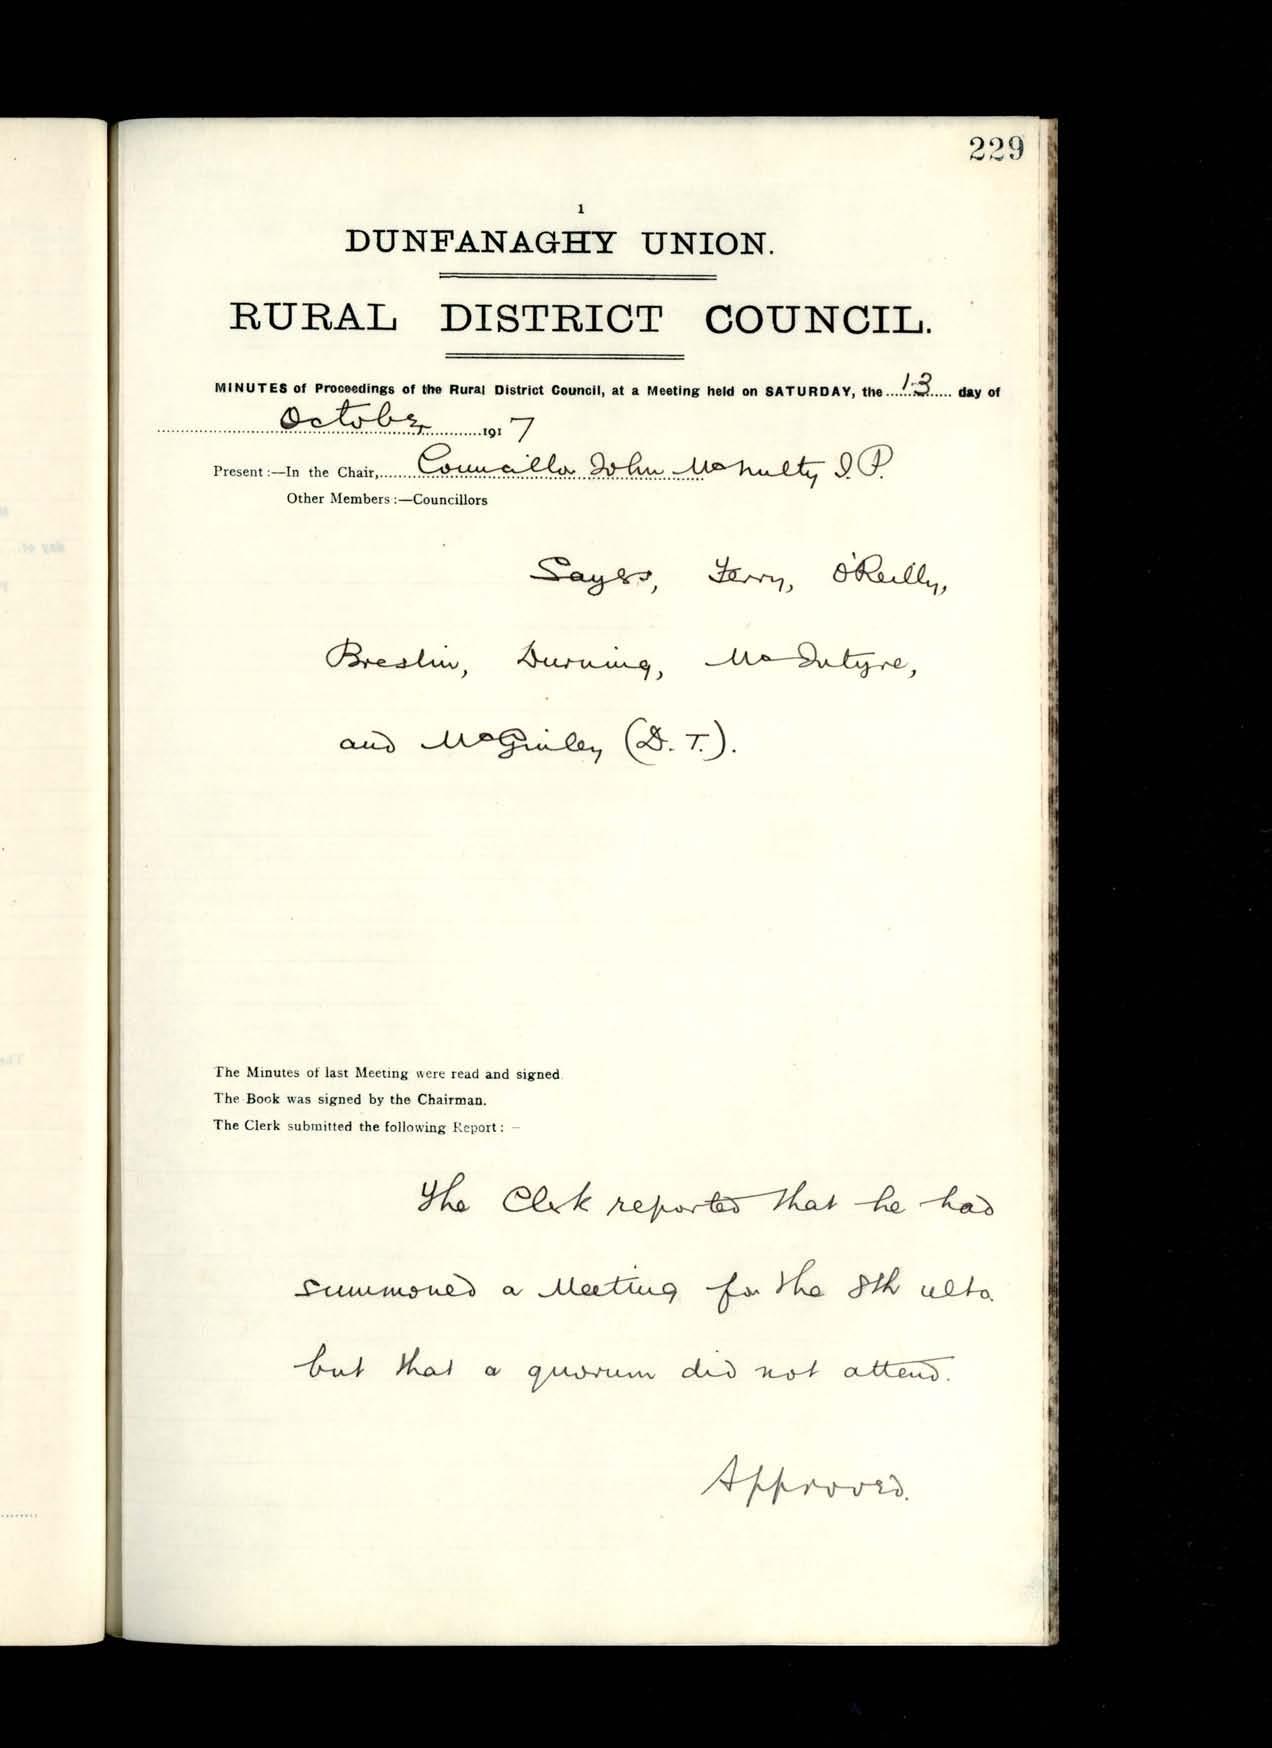 229
1
DUNFANAGHY UNION.
RURAL DISTRICT COUNCIL.
MINUTES of Proceedings of the Rural District Council, at a Meeting held on SATURDAY, the 13 day of
October 1917
Present :—In the Chair, Councillor John McNulty J.P.
Other Members :—Councillors
Sayers, Ferry, O'Reilly,
Breslin, Durning, McIntyre,
and McGinley (D. T.).
The Minutes of last Meeting were read and signed.
The Book was signed by the Chairman.
The Clerk submitted the following Report : —
The Clerk reported that he had
summoned a Meeting for the 8th ulto.
but that a quorum did not attend.
Approved.